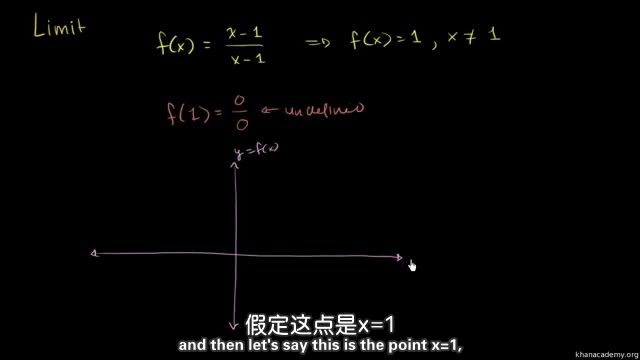 Limit
f(x) = x-1 / x-1 ⇒ f(x) = 1 , x ≠ 1
f(1) = 0 / 0 ← undefined
y = f(x)
假定这点是x=1
and then let's say this is the point x=1,
khanacademy.org